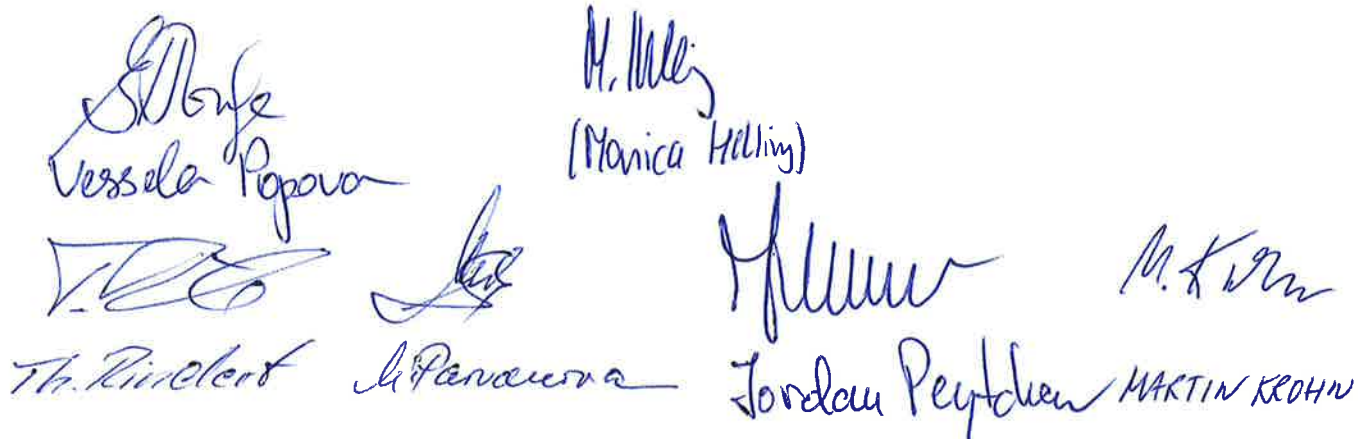 Vessela Popova
M. Helling
(Monica Helling)
Th. Rindert
M. Parvanova
Jordan Peytchev
M. Krohn
MARTIN KROHN